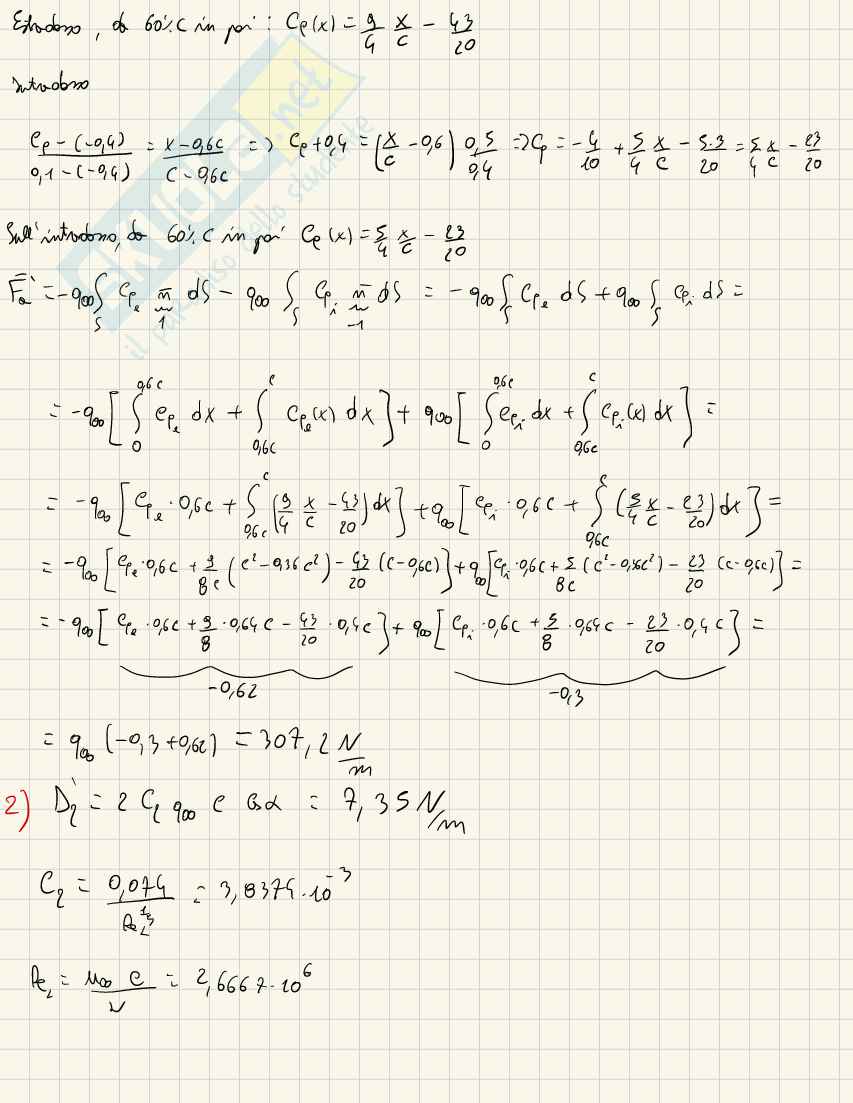 Estradosso, da 60% c in poi: Cp(x) = 9/4 x/c − 43/20
Intradosso
(Cp − (−0,4))/(0,1 − (−0,4)) = (x − 0,6c)/(c − 0,6c) => Cp + 0,4 = (x/c − 0,6) 0,5/0,4 => Cp = −4/10 + 5/4 x/c − 5·3/20 = 5/4 x/c − 23/20
Sull'intradosso, da 60% c in poi Cp(x) = 5/4 x/c − 23/20
F̄a' = −q∞ ∫_S Cp_e n̄ dS − q∞ ∫_S Cp_i n̄ dS = −q∞ ∫_S Cp_e dS + q∞ ∫_S Cp_i dS =
1 −1
= −q∞ [ ∫_0^0,6c Cp_e dx + ∫_0,6c^c Cp_e(x) dx ] + q∞ [ ∫_0^0,6c Cp_i dx + ∫_0,6c^c Cp_i(x) dx ] =
= −q∞ [ Cp_e · 0,6c + ∫_0,6c^c (9/4 x/c − 43/20) dx ] + q∞ [ Cp_i · 0,6c + ∫_0,6c^c (5/4 x/c − 23/20) dx ] =
= −q∞ [ Cp_e · 0,6c + 9/8c (c² − 0,36c²) − 43/20 (c − 0,6c) ] + q∞ [ Cp_i · 0,6c + 5/8c (c² − 0,36c²) − 23/20 (c − 0,6c) ] =
= −q∞ [ Cp_e · 0,6c + 9/8 · 0,64c − 43/20 · 0,4c ] + q∞ [ Cp_i · 0,6c + 5/8 · 0,64c − 23/20 · 0,4c ] =
−0,62 −0,3
= q∞ (−0,3 + 0,62) = 307,2 N/m
2) D' = 2 C q∞ c cosα = 7,35 N/m
C = 0,074/Re = 3,8374·10⁻³
Re = u∞ c/ν = 2,6667·10⁶
skuola.net
il paradiso dello studente